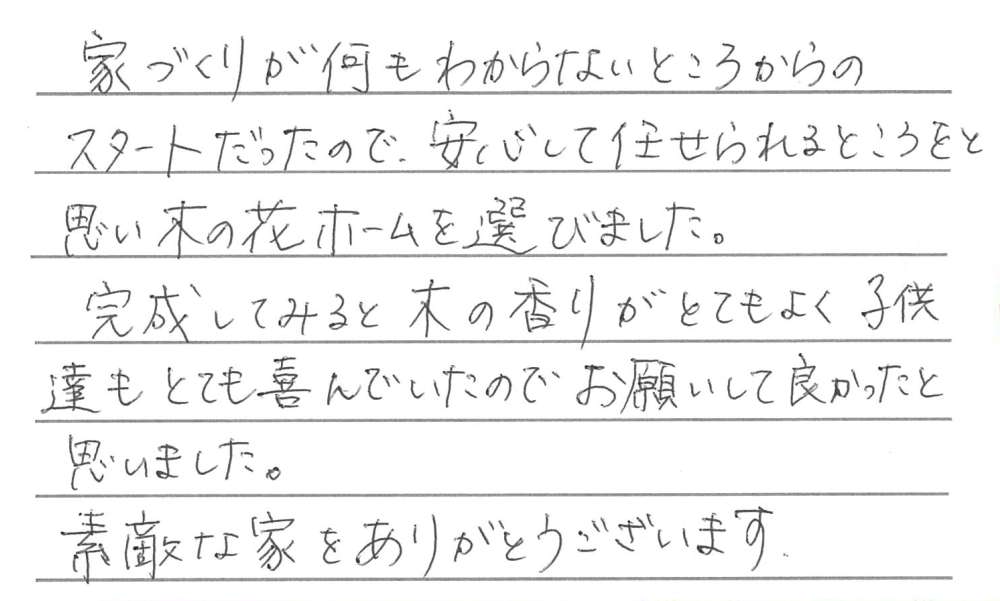 家づくりが何もわからないところからの
スタートだったので、安心して任せられるところをと
思い木の花ホームを選びました。
完成してみると木の香りがとてもよく子供
達もとても喜んでいたのでお願いして良かったと
思いました。
素敵な家をありがとうございます.